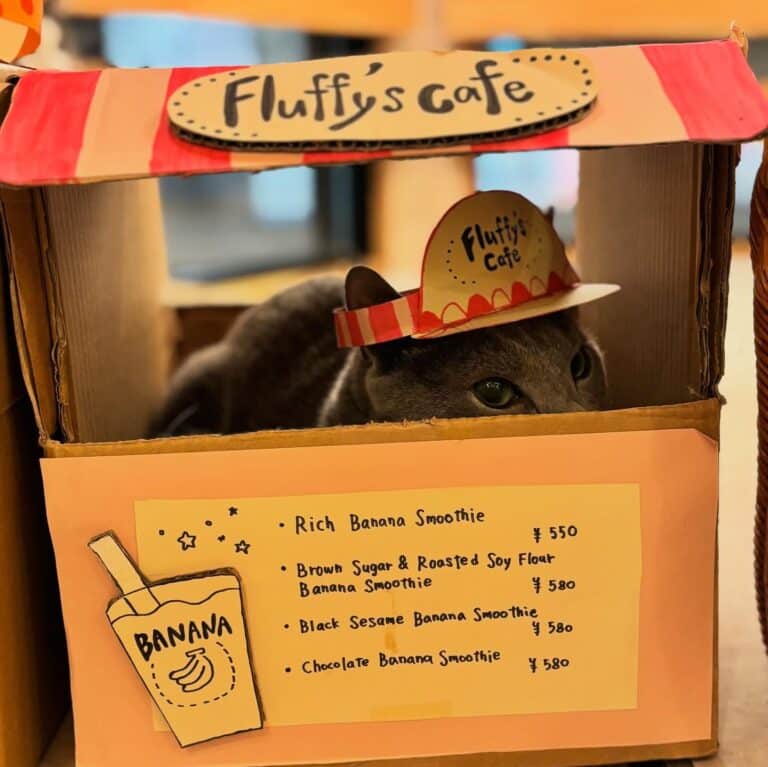 Fluffy's cafe
Fluffy's
Cafe
• Rich Banana Smoothie
¥ 550
• Brown Sugar & Roasted Soy Flour
Banana Smoothie ¥ 580
• Black Sesame Banana Smoothie
¥ 580
• Chocolate Banana Smoothie ¥ 580
BANANA